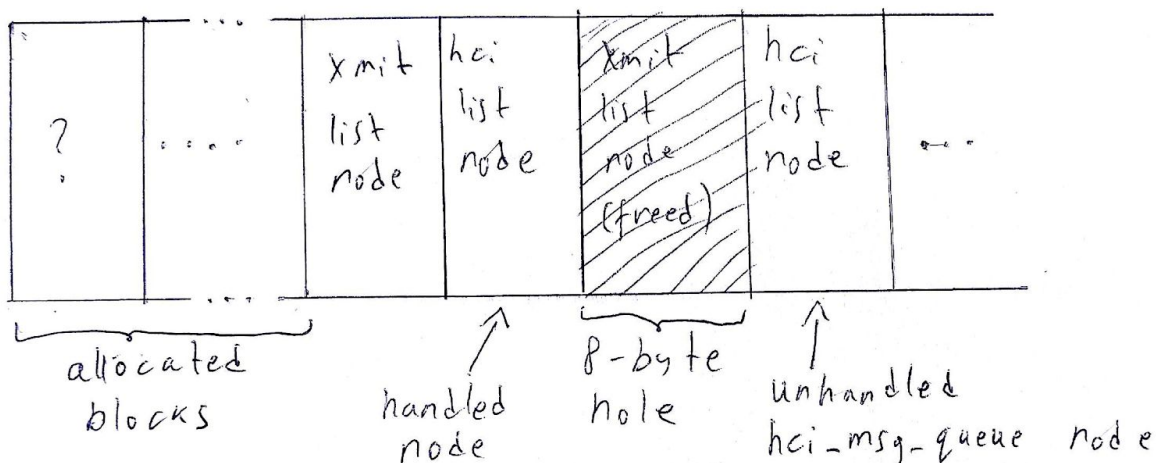 ?
....
....
....
xmit
list
node
hci
list
node
xmit
list
node
(freed)
hci
list
node
...
allocated
blocks
handled
node
8-byte
hole
unhandled
hci_msg_queue node